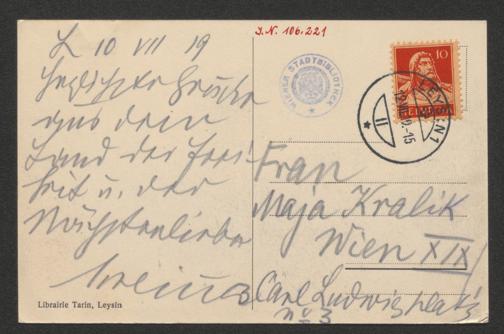 L 10 VII 19
Herzlichste Grüße
aus dem
Land der Frei
heit u. der
Nächstenliebe
Librairie Tarin, Leysin
J.N. 106.221
WIENER STADTBIBLIOTHEK
10
HELVETIA
LEYSIN 1
Frau
Maja Kralik
Wien XIX/
Carl Ludwigplatz
No 3